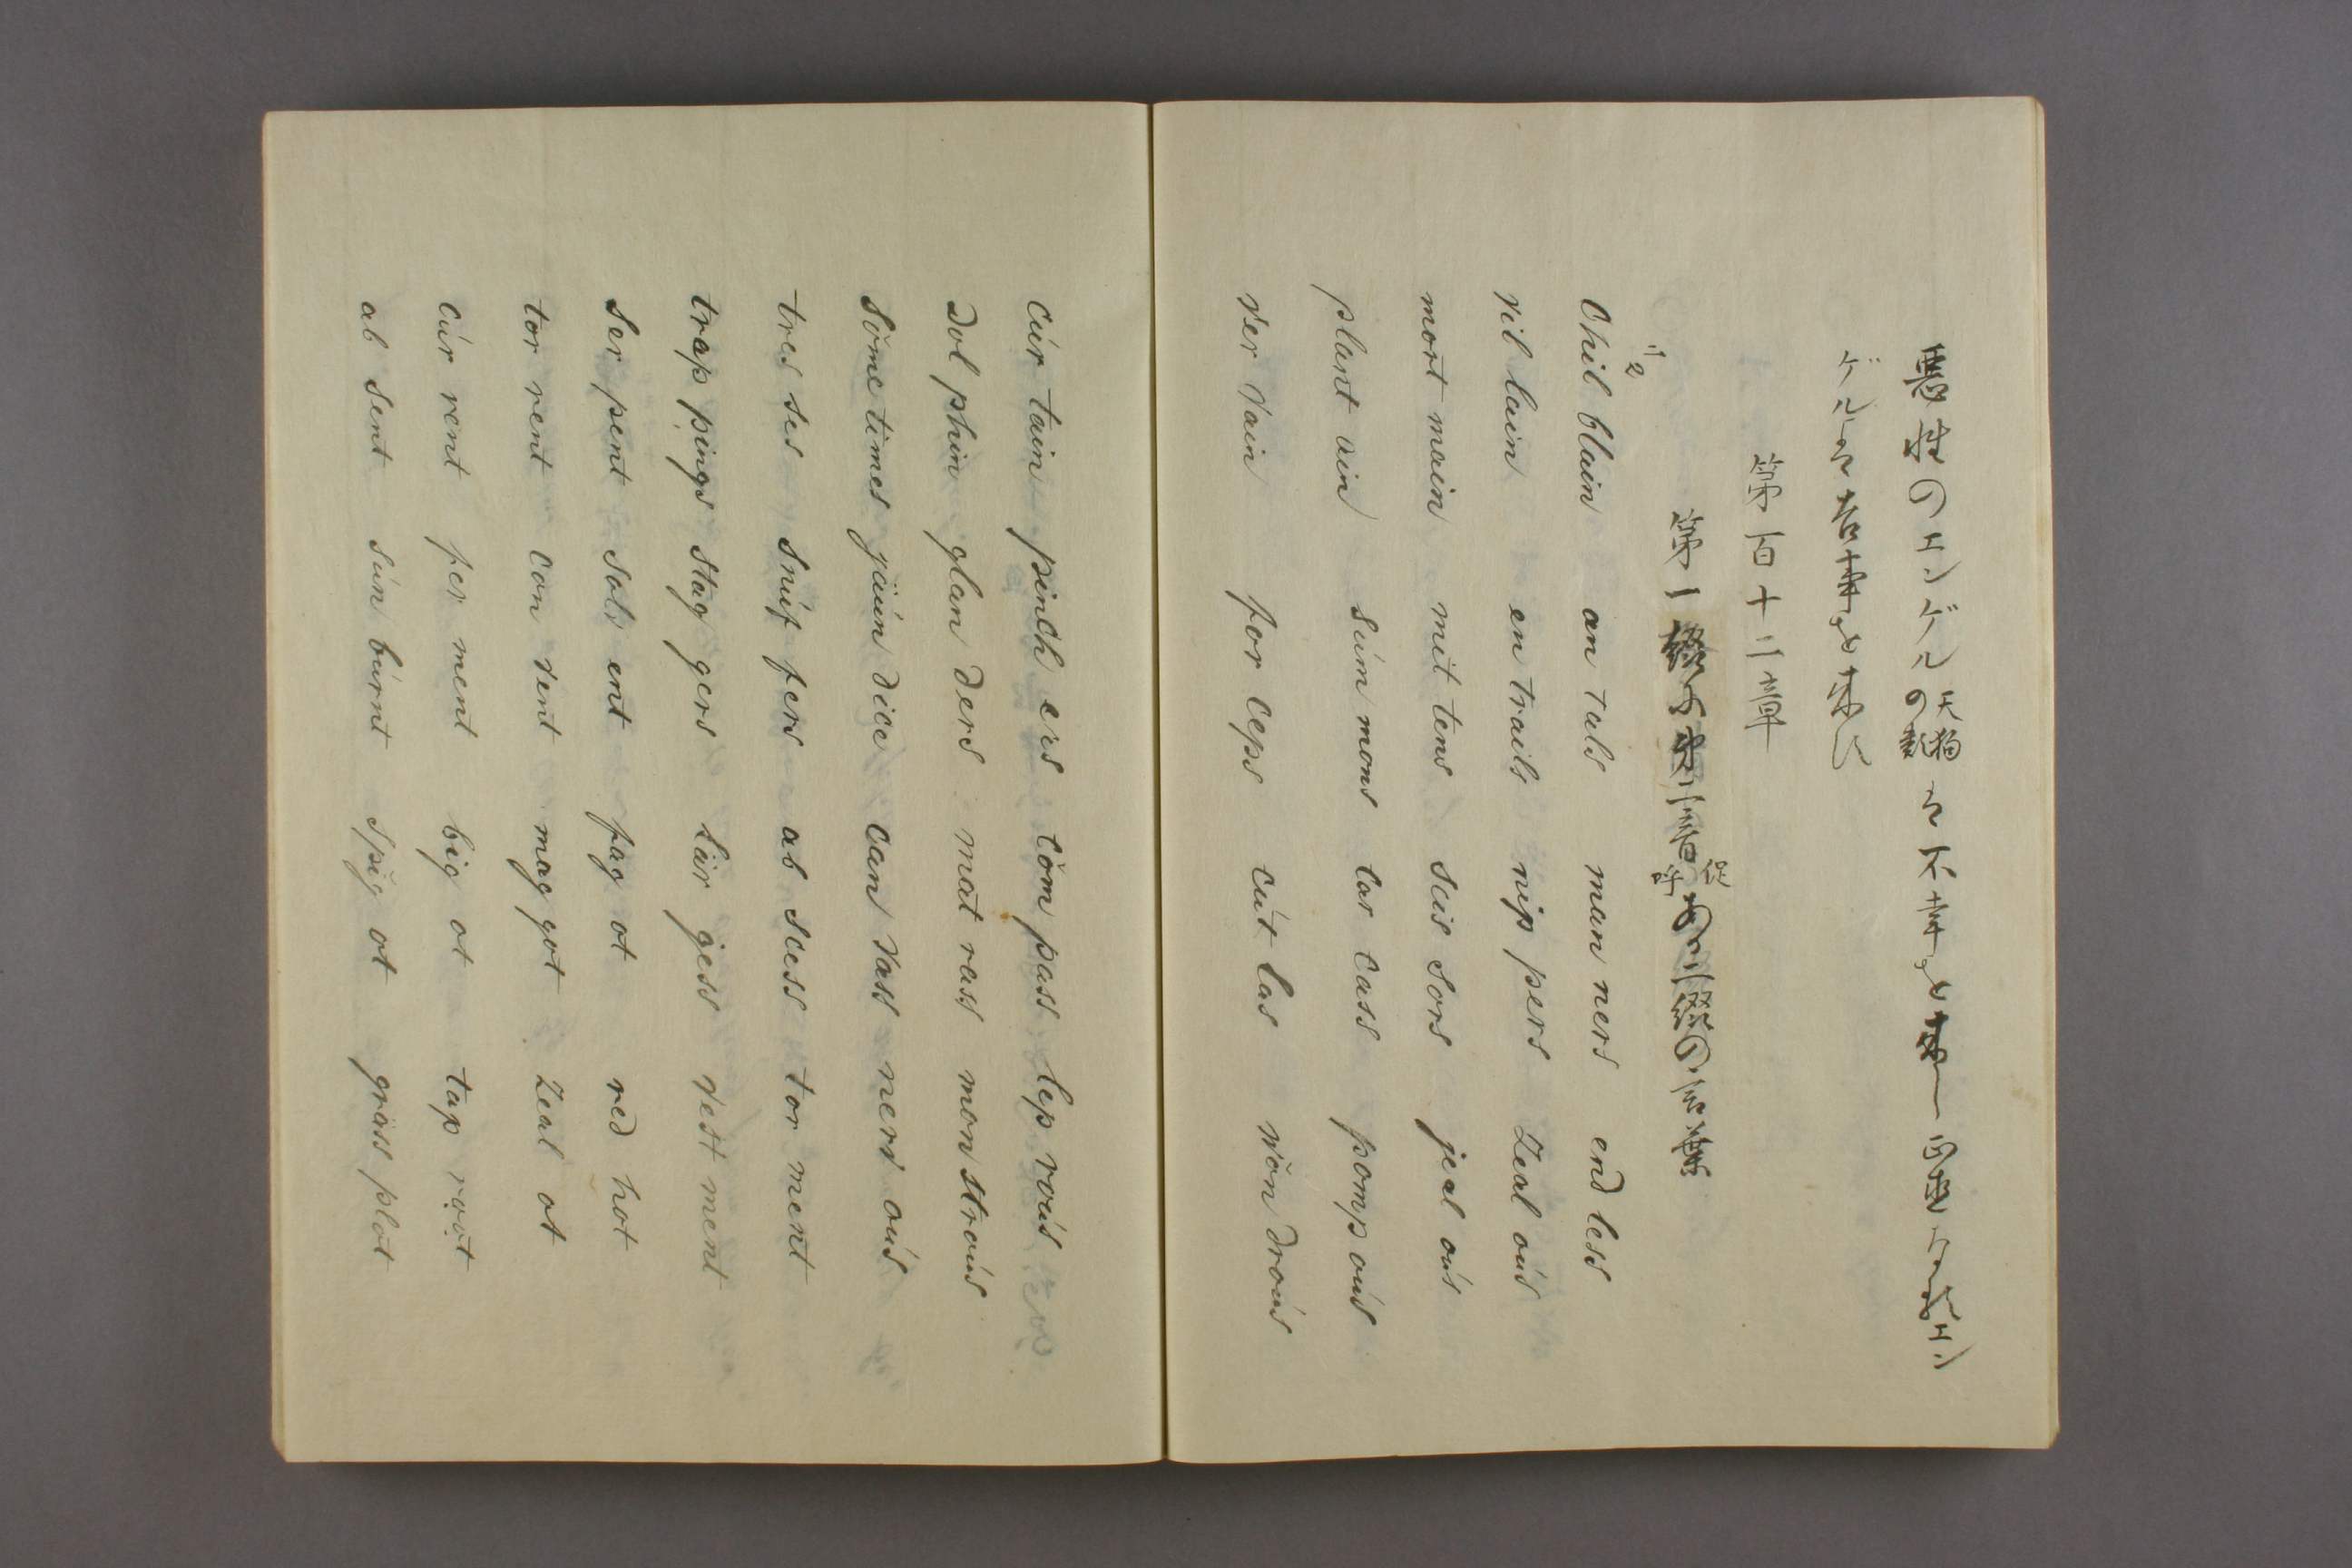 悪性のエンゲル天狗の類は不幸を来し正直なるエン
ゲルは吉事を来に
第百十二章
第一綴る中二音促呼ある二綴の言葉
1 2
Chil blain an tals man ners end less
vil lain en trails nip pers Zeal oús
mort main mit tens scis sors jeal oús
plant ain súm mons car cass pomp oús
ver vain for ceps cút las wŏn droús
cúr tain pinch ers cŏm pass lep roús
dol phin glan ders mat rass mon stroús
sŏme times jäún dice can vass nerv oús
tres ses snúf fers ab scess tor ment
trap pings stag gers lär gess vest ment
ser pent solv ent fag ot red hot
tor rent con vent mag got Zeal ot
cúr rent fer ment big ot tap rọọt
ab sent sún búrnt spig ot gräss plot